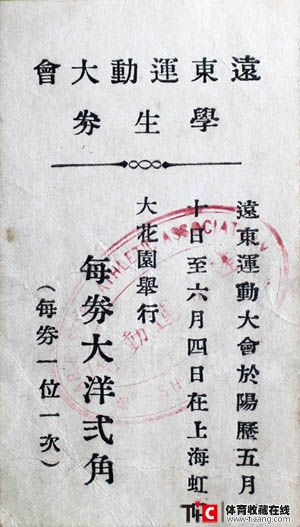 遠東運動大會
學生券
遠東運動大會於陽歷五月
十日至六月四日在上海虹
大花園舉行
每券大洋弍角
（每券一位一次）
ATHLETIC ASSOCIAT
運動
体育收藏在线